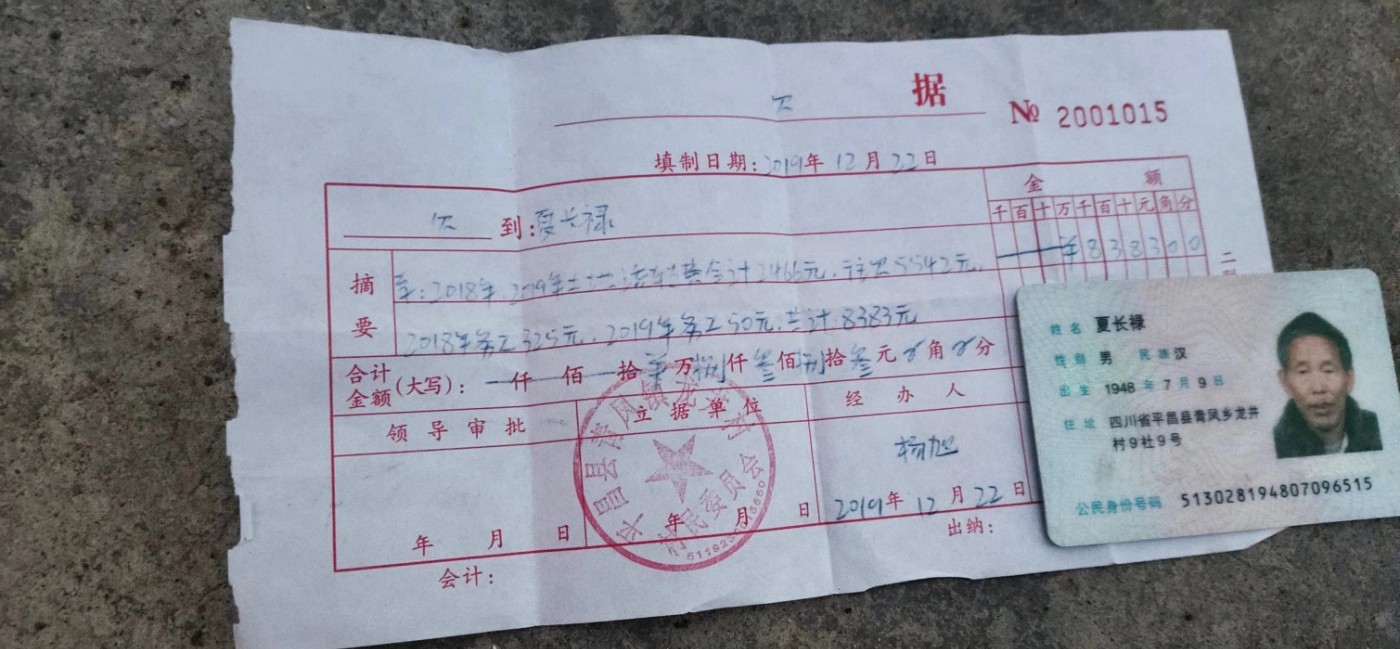 欠 据
№ 2001015
填制日期:2019年12月22日
欠 到:夏长禄
金 额
千百十万千百十元角分
¥838300
摘要
2018年、2019年土地流转费合计2466元、5542元、
2018年务工325元、2019年务工50元,共计8383元
合计金额(大写): 仟 佰 拾 万捌仟叁佰捌拾叁元 角 分
领导审批
立据单位
经办人
杨旭
年 月 日
年 月 日
2019年12月22日
会计:
出纳:
平昌县青凤镇龙井村
村民委员会
姓名 夏长禄
性别 男 民族 汉
出生 1948年7月9日
住址 四川省平昌县青凤乡龙井
村9社9号
公民身份号码 513028194807096515